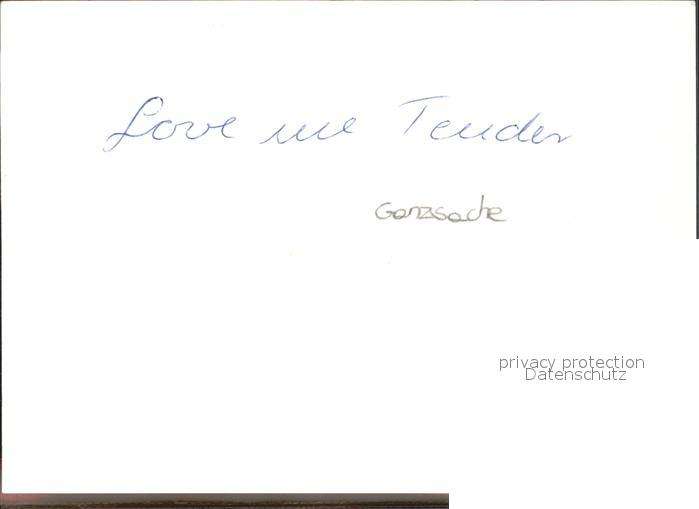 Love me Tender
Ganzsache
privacy protection
Datenschutz